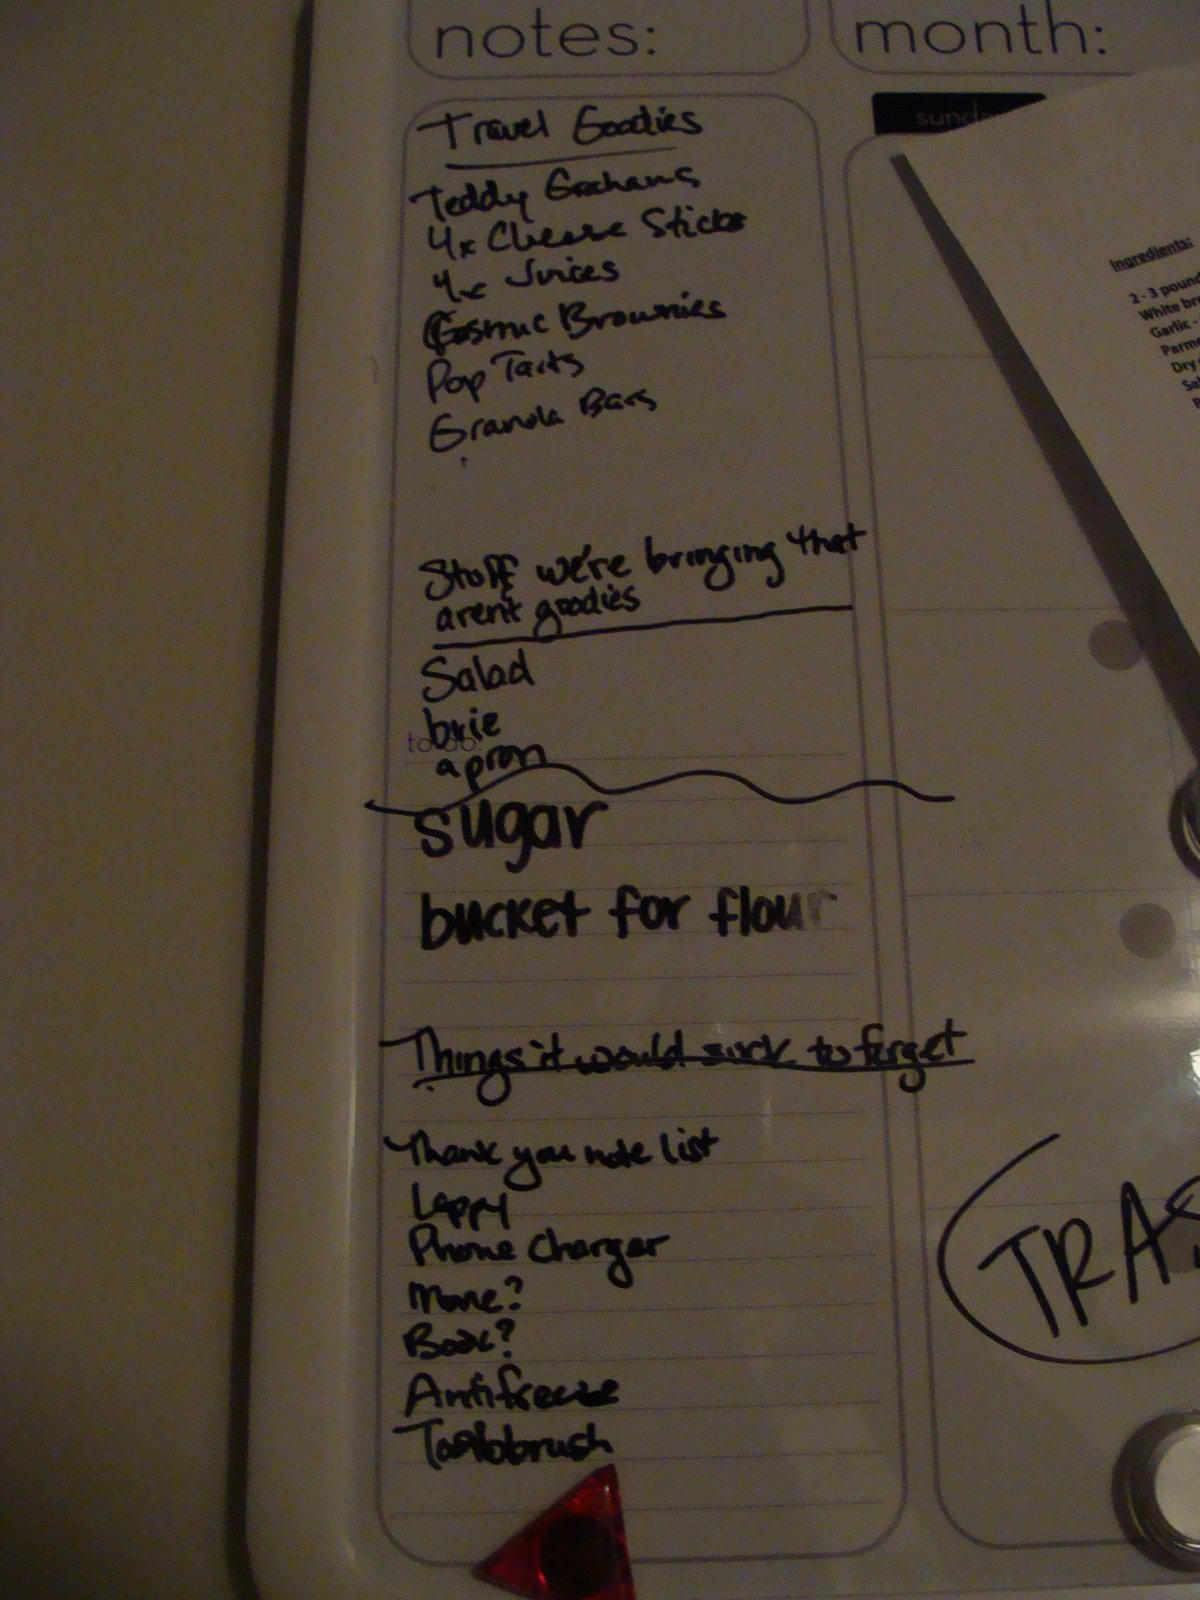 notes:
month:
Travel Goodies
Teddy Grahams
4x Cheese Sticks
4x Juices
Cosmic Brownies
Pop Tarts
Granola Bars
Stuff we're bringing that
aren't goodies
Salad
brie
to do:
apron
sugar
bucket for flour
Things it would suck to forget
Thank you note list
Lappy
Phone Charger
Book?
Antifreeze
Toothbrush
sund
Ingredients:
2 - 3 pound
White bre
Garlic -
Parme
Dry
Sal
TRAS